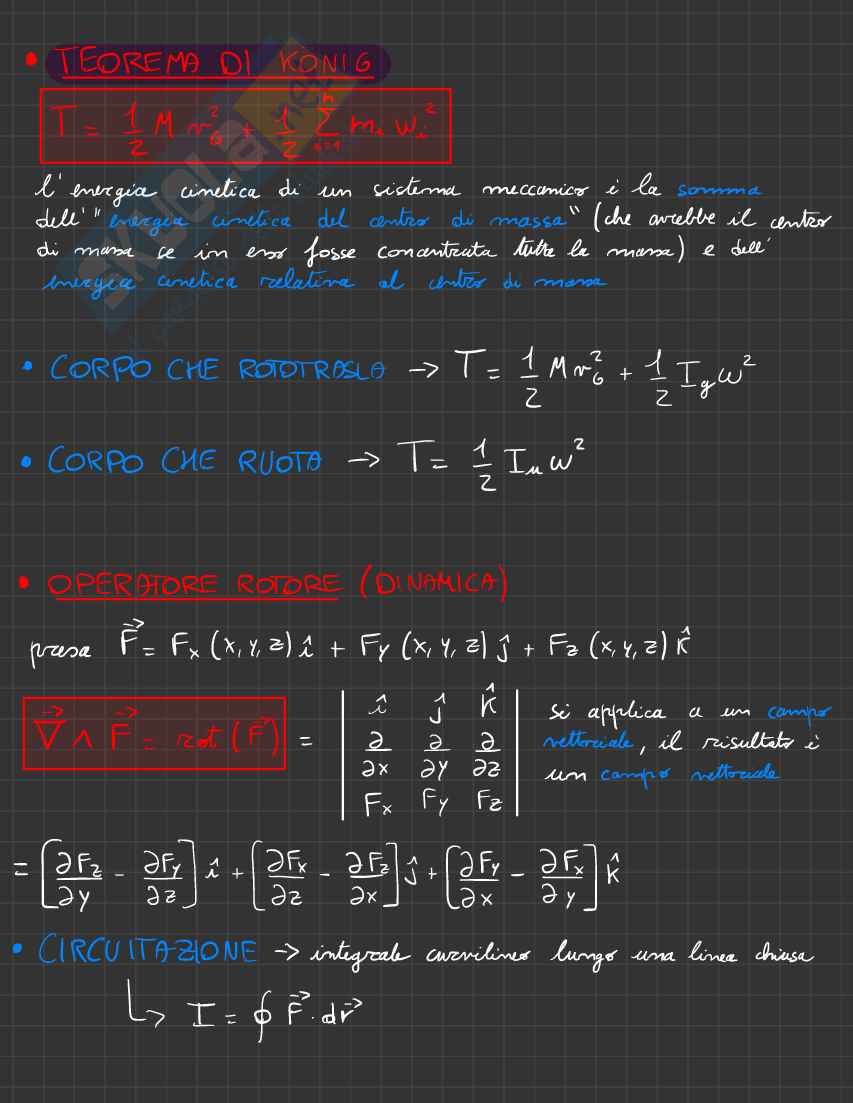 • TEOREMA DI KÖNIG
T = 1/2 M v_G² + 1/2 Σ_{i=1}^{n} m_i w_i²
l'energia cinetica di un sistema meccanico è la somma
dell'"energia cinetica del centro di massa" (che avrebbe il centro
di massa se in esso fosse concentrata tutta la massa) e dell'
energia cinetica relativa al centro di massa
• CORPO CHE ROTOTRASLA → T = 1/2 M v_G² + 1/2 I_g ω²
• CORPO CHE RUOTA → T = 1/2 I_u ω²
• OPERATORE ROTORE (DINAMICA)
presa F⃗ = Fx (x, y, z) î + Fy (x, y, z) ĵ + Fz (x, y, z) k̂
∇⃗ ∧ F⃗ = rot (F⃗) = | î ĵ k̂ | si applica a un campo
| ∂/∂x ∂/∂y ∂/∂z | vettoriale, il risultato è
| Fx Fy Fz | un campo vettoriale
= [∂Fz/∂y - ∂Fy/∂z] î + [∂Fx/∂z - ∂Fz/∂x] ĵ + [∂Fy/∂x - ∂Fx/∂y] k̂
• CIRCUITAZIONE → integrale curvilineo lungo una linea chiusa
↳ I = ∮ F⃗ · dr⃗